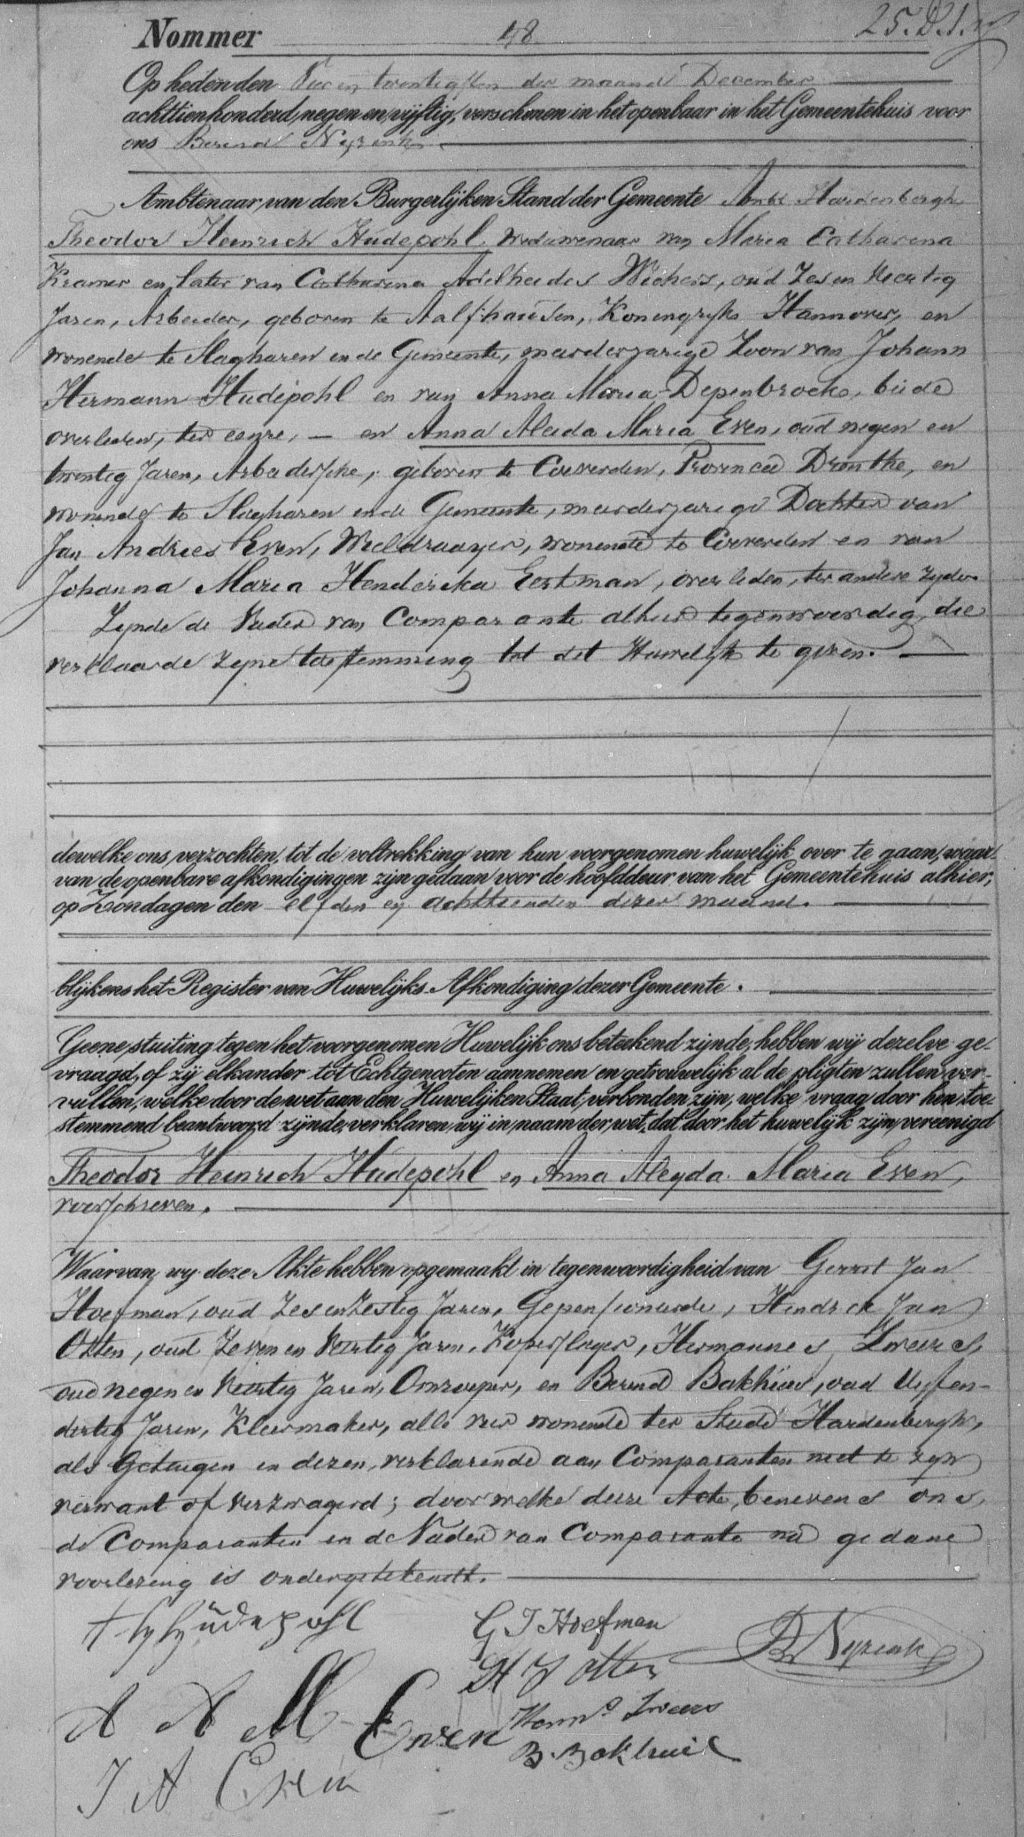 Nommer 48. 25. D. I.
Op heden den Vier en twentigsten der maand December
achttienhonderd negen en vijftig, verschenen in het openbaar in het Gemeentehuis voor
ons Berend Nyzink.
Ambtenaar van den Burgerlijken Stand der Gemeente Ambt Hardenbergh
Theodor Heinrich Hüdepohl, weduwenaar van Maria Catharina
Kramer en later van Catharina Adelheides Wichers, oud Zes en Veertig
Jaren, Arbeider, geboren te Aalfhausen, Koningryk Hannover, en
wonende te Slagharen in de Gemeente, meerderjarige Zoon van Johann
Hermann Hüdepohl en van Anna Maria Depenbrocke, beide
overleden, ter eenre, — en Anna Aleida Maria Even, oud negen en
twentig Jaren, Arbeidersche, geboren te Coeverden, Provincie Drenthe, en
wonende te Slagharen in de Gemeente, meerderjarige Dochter van
Jan Andries Even, Wieldraayer, wonende te Coeverden en van
Johanna Maria Henderika Eertman, overleden, ter andere zyde.
Zynde de Vader van Comparante alhier tegenwoordig, die
verklaarde zyne toestemming tot dit Huwelyk te geven.
dewelke ons verzochten tot de voltrekking van hun voorgenomen huwelijk over te gaan, waar-
van de openbare afkondigingen zijn gedaan voor de hoofddeur van het Gemeentehuis alhier,
op Zondagen den elfden en achttienden dezer maand.
blijkens het Register van Huwelijks Afkondiging dezer Gemeente.
Geene stuiting tegen het voorgenomen Huwelijk ons beteekend zijnde, hebben wij dezelve ge-
vraagd, of zij elkander tot Echtgenooten aannemen en getrouwelijk al de pligten zullen ver-
vullen, welke door de wet aan den Huwelijken Staat verbonden zijn, welke vraag door hen toe-
stemmend beantwoord zijnde, verklaren wij in naam der wet, dat door het huwelijk zijn vereenigd
Theodor Heinrich Hüdepohl en Anna Aleyda Maria Even,
voorschreven.
Waarvan wy deze Akte hebben opgemaakt in tegenwoordigheid van Gerrit Jan
Hoefman, oud Zes en Zestig Jaren, Gepensioneerde, Hendrik Jan
Otten, oud Zeven en Veertig Jaren, Koperslager, Hermannes Zweers,
oud negen en Veertig Jaren, Omroeper, en Berend Bakhuis, oud Vyf en
dertig Jaren, Kleermaker, alle vier wonende ter Stede Hardenbergh,
als Getuigen in dezen, verklarende aan Comparanten niet te zyn
verwant of verzwagerd; door welke deze Acte, benevens ons,
de Comparanten en de Vader van Comparante na gedane
voorlezing is ondergeteekendt.
Th H Hüdepohl G J Hoefman
B Nyzink
H J Otten
A A M Even
Herms Zweers
B. Bakhuis
J A Even